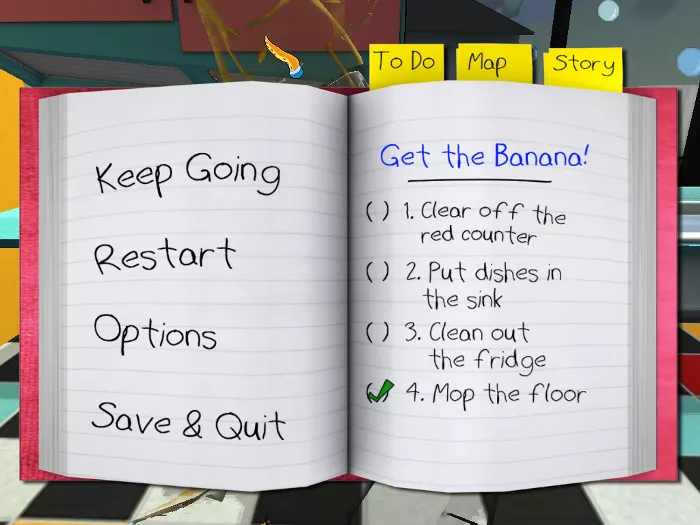 To Do
Map
Story
Keep Going
Restart
Options
Save & Quit
Get the Banana!
( ) 1. Clear off the
red counter
( ) 2. Put dishes in
the sink
( ) 3. Clean out
the fridge
(✓) 4. Mop the floor